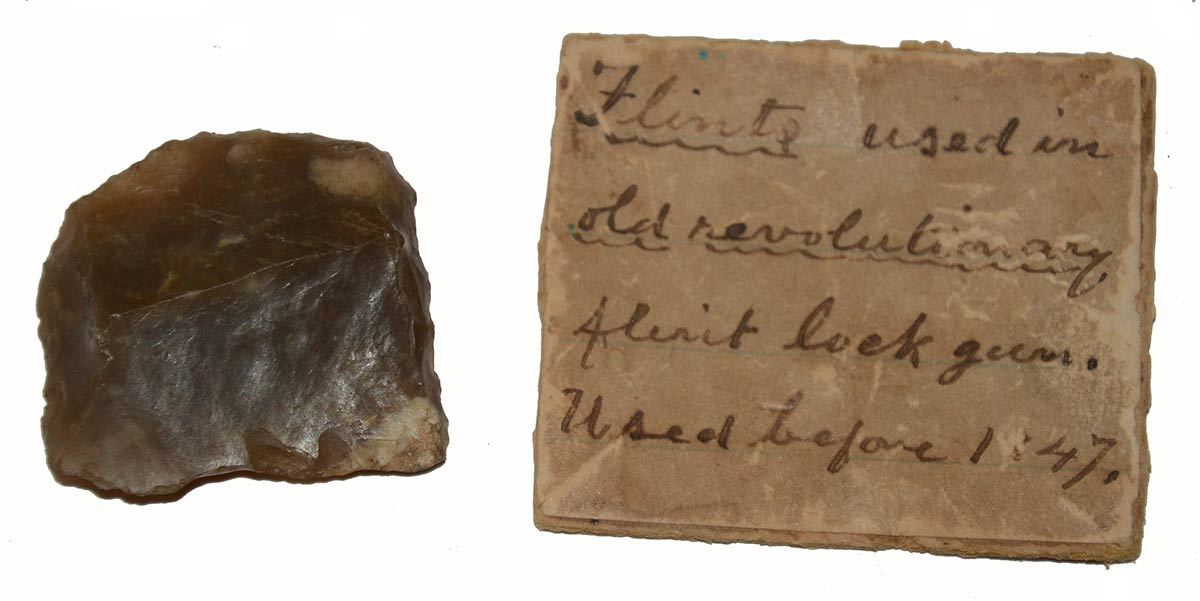 Flints used in
old revolutionary
flint lock gun.
Used before